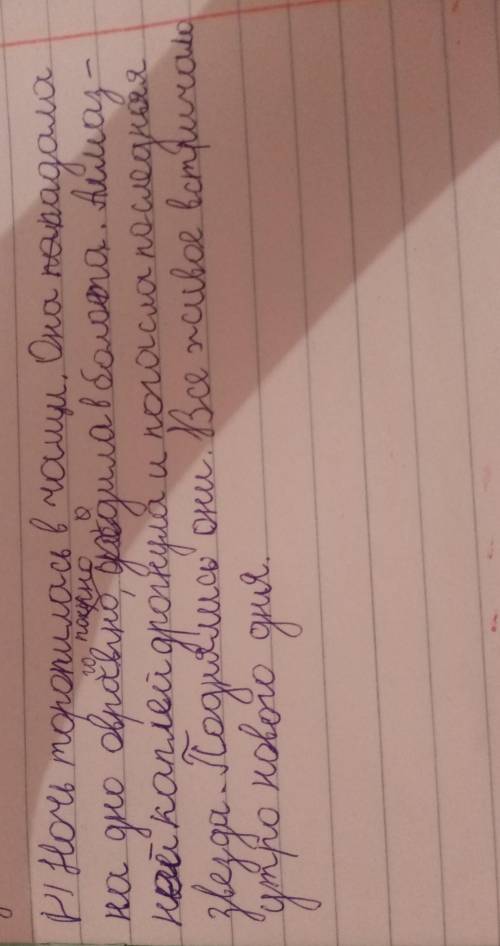 Р/ Ночь торопилась в чащи. Она парадала
на дно оврагов, поздно уходила в болота. Алмаз-
ной каплей дрогнула и погасла последняя
звезда. Поднялись они. Все живое встричало
утро нового дня.